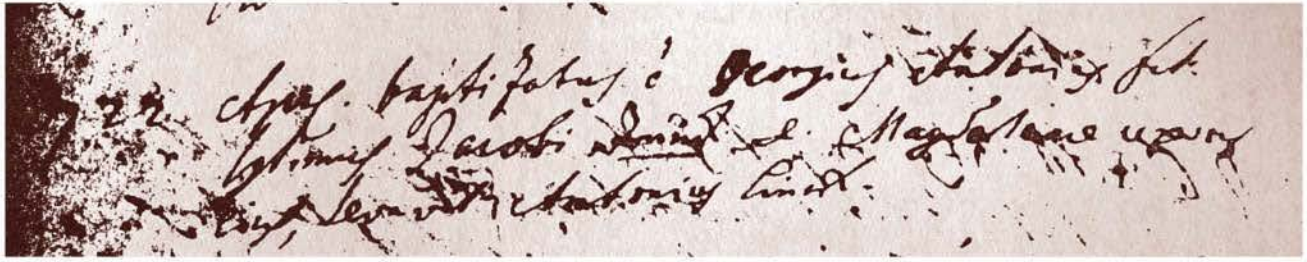 22. Apris. baptizatus é Georgius Antonius fil.
legitimus Jacobi et Magdalane uxoris
eius, levavit Antonius Linck.